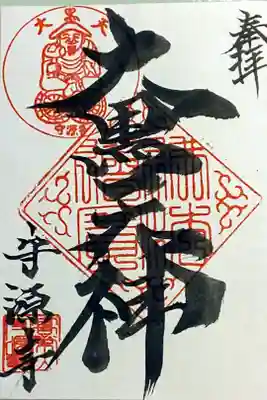 奉拝
大黒天神
守源寺
大黒天
守源寺